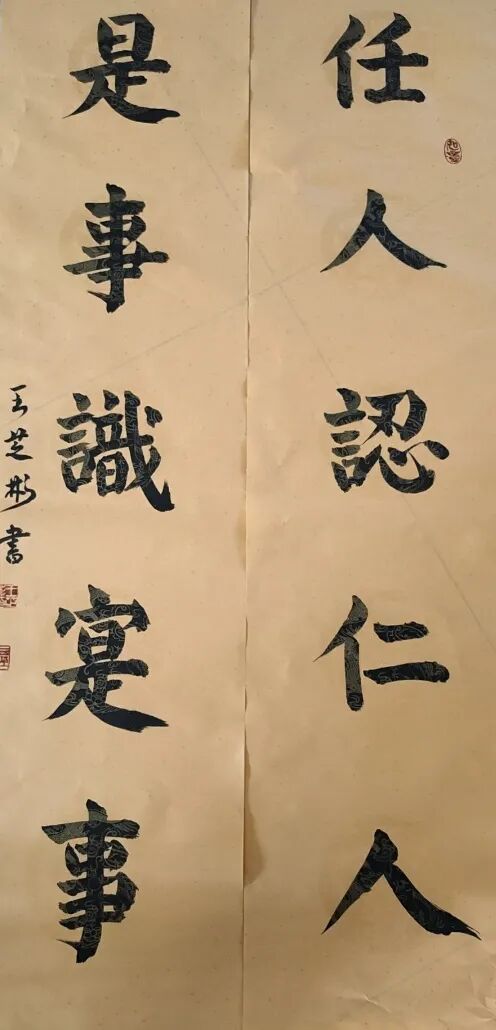 任人認仁人
是事識寔事
王芝彬書